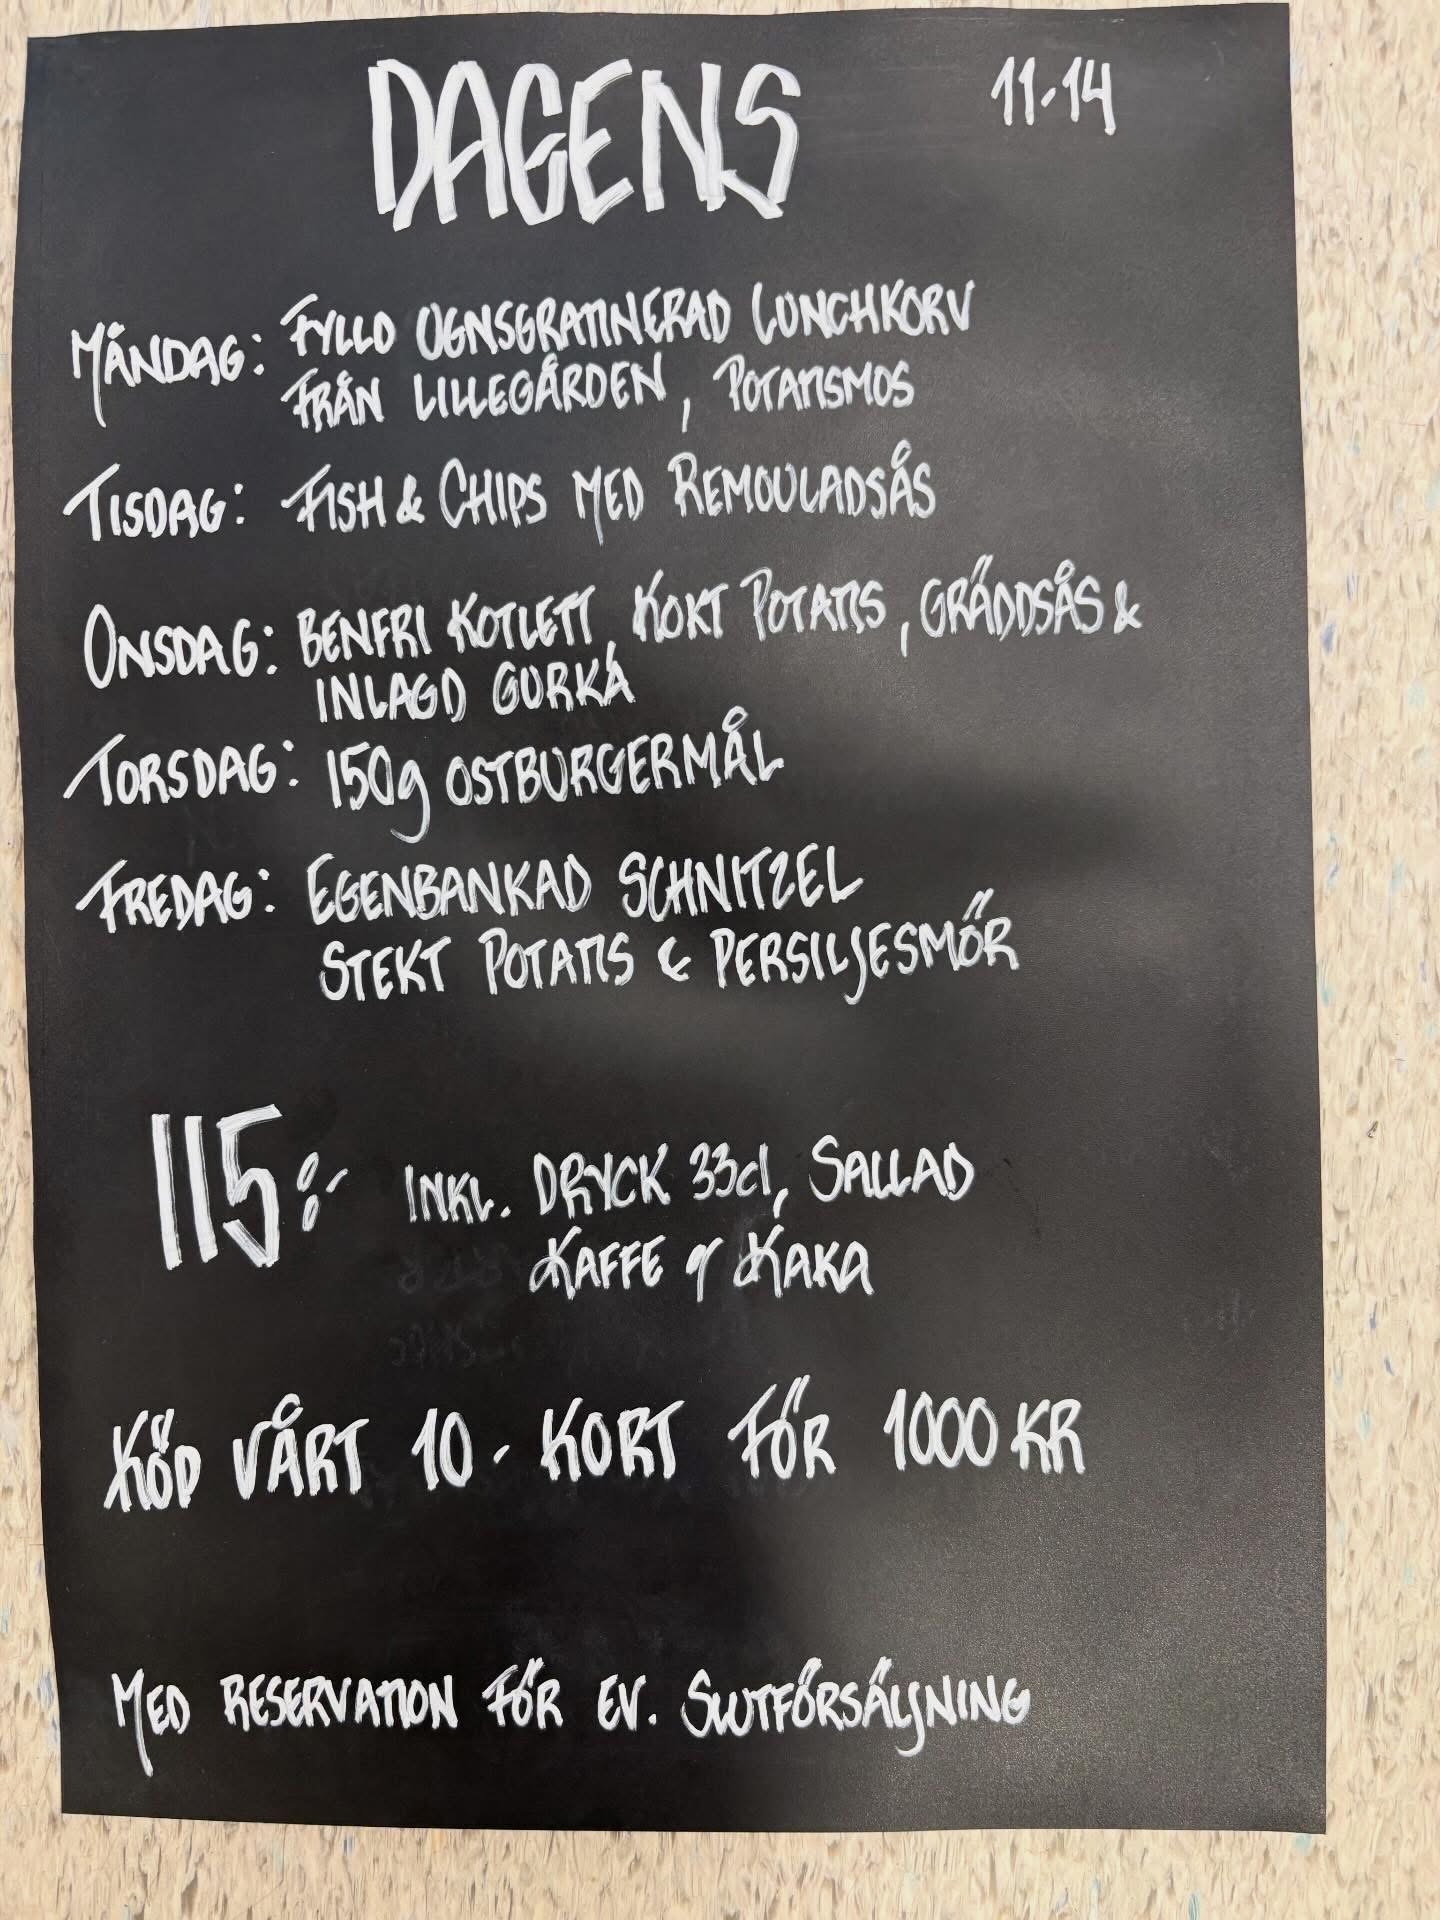 DAGENS 11-14
MÅNDAG: FYLLD UGNSGRATINERAD LUNCHKORV
FRÅN LILLEGÅRDEN, POTATISMOS
TISDAG: FISH & CHIPS MED REMOULADSÅS
ONSDAG: BENFRI KOTLETT, KOKT POTATIS, GRÄDDSÅS &
INLAGD GURKA
TORSDAG: 150g OSTBURGERMÅL
FREDAG: EGENBANKAD SCHNITZEL
STEKT POTATIS & PERSILJESMÖR
115:- INKL. DRYCK 33cl, SALLAD
KAFFE & KAKA
KÖP VÅRT 10-KORT FÖR 1000 KR
MED RESERVATION FÖR EV. SLUTFÖRSÄLJNING